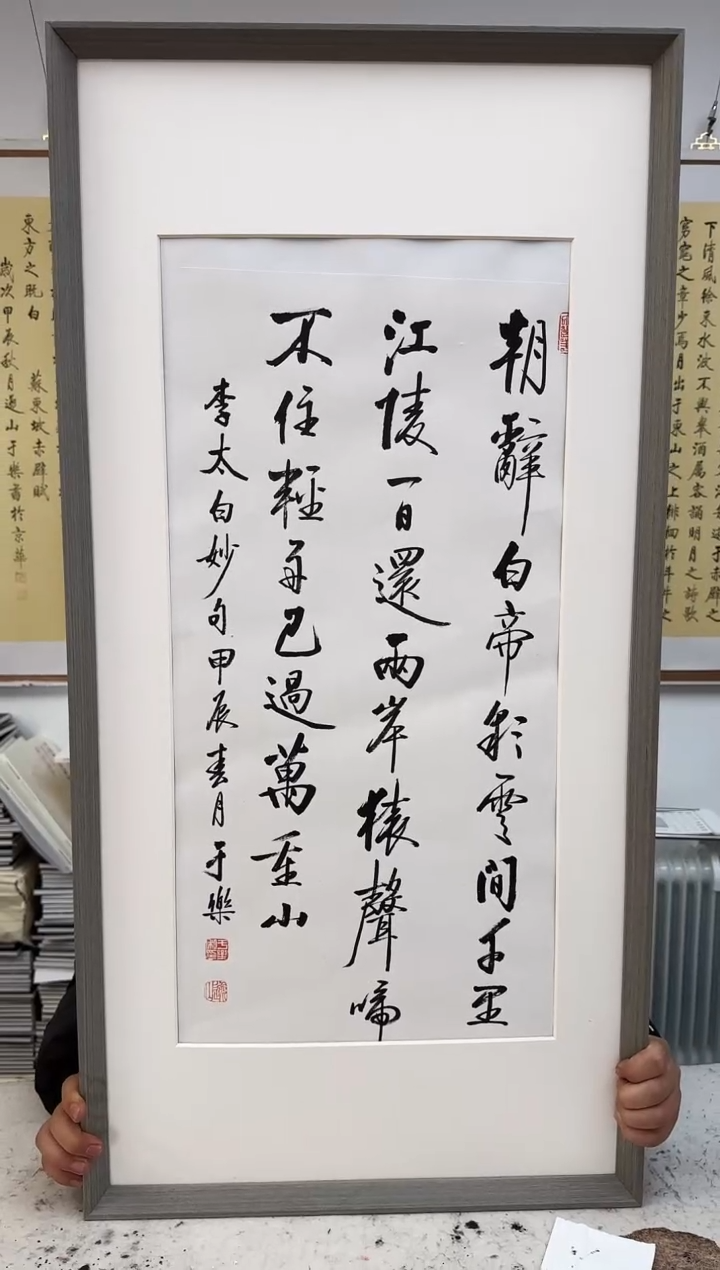 朝辭白帝彩雲間千里
江陵一日還兩岸猿聲啼
不住輕舟已過萬重山
李太白妙句甲辰春月于樂
下清風徐來水波不興舉酒屬客誦明月之詩歌
窈窕之章少焉月出于東山之上徘徊於斗牛之
東方之既白 蘇東坡赤壁賦
歲次甲辰秋月逸山于樂書於京華